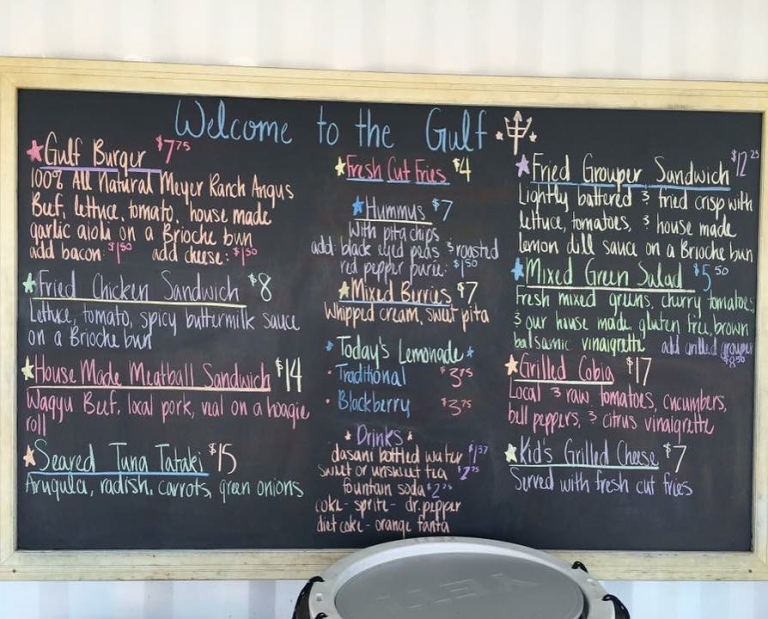 Welcome to the Gulf
Gulf Burger $7.75
100% All Natural Meyer Ranch Angus
Beef, lettuce, tomato, house made
garlic aioli on a Brioche bun
add bacon: $1.50 add cheese: $1.50
Fried Chicken Sandwich $8
Lettuce, tomato, spicy buttermilk sauce
on a Brioche bun
House Made Meatball Sandwich $14
Wagyu Beef, local pork, veal on a hoagie
roll
Seared Tuna Tataki $15
Arugula, radish, carrots, green onions
Fresh Cut Fries $4
Hummus $7
With pita chips
add black eyed peas & roasted
red pepper puree: $1.50
Mixed Berries $7
Whipped cream, sweet pita
Today's Lemonade
Traditional $3.75
Blackberry $3.75
Drinks
dasani bottled water
sweet or unsweet tea $2.25
fountain soda
coke - sprite - dr. pepper
diet coke - orange fanta
Fried Grouper Sandwich $12.25
Lightly battered & fried crisp with
lettuce, tomatoes, & house made
lemon dill sauce on a Brioche bun
Mixed Green Salad $5.50
Fresh mixed greens, cherry tomatoes,
& our house made gluten free, brown
balsamic vinaigrette add grilled grouper
$8.50
Grilled Cobia $17
Local & raw tomatoes, cucumbers,
bell peppers, & citrus vinaigrette
Kid's Grilled Cheese $7
Served with fresh cut fries
YETI